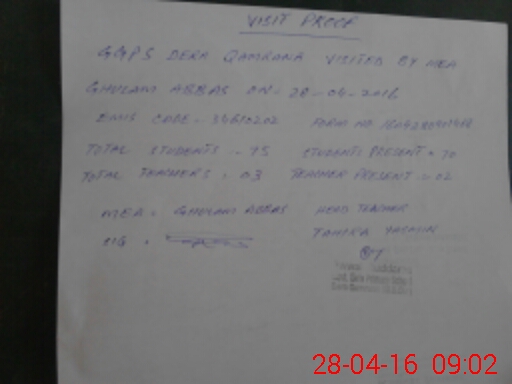 VISIT PROOF
GGPS DERA QAMRANA VISITED BY MEA
GHULAM ABBAS ON - 28-04-2016
EMIS CODE - 34610202 FORM NO
TOTAL STUDENTS - 75 STUDENTS PRESENT = 70
TOTAL TEACHERS = 03 TEACHER PRESENT = 02
MEA = GHULAM ABBAS HEAD TEACHER
SIG = TAHIRA YASMIN
28-04-16 09:02